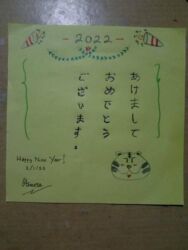 2022
あけまして
おめでとう
ございます。
Happy New Year!